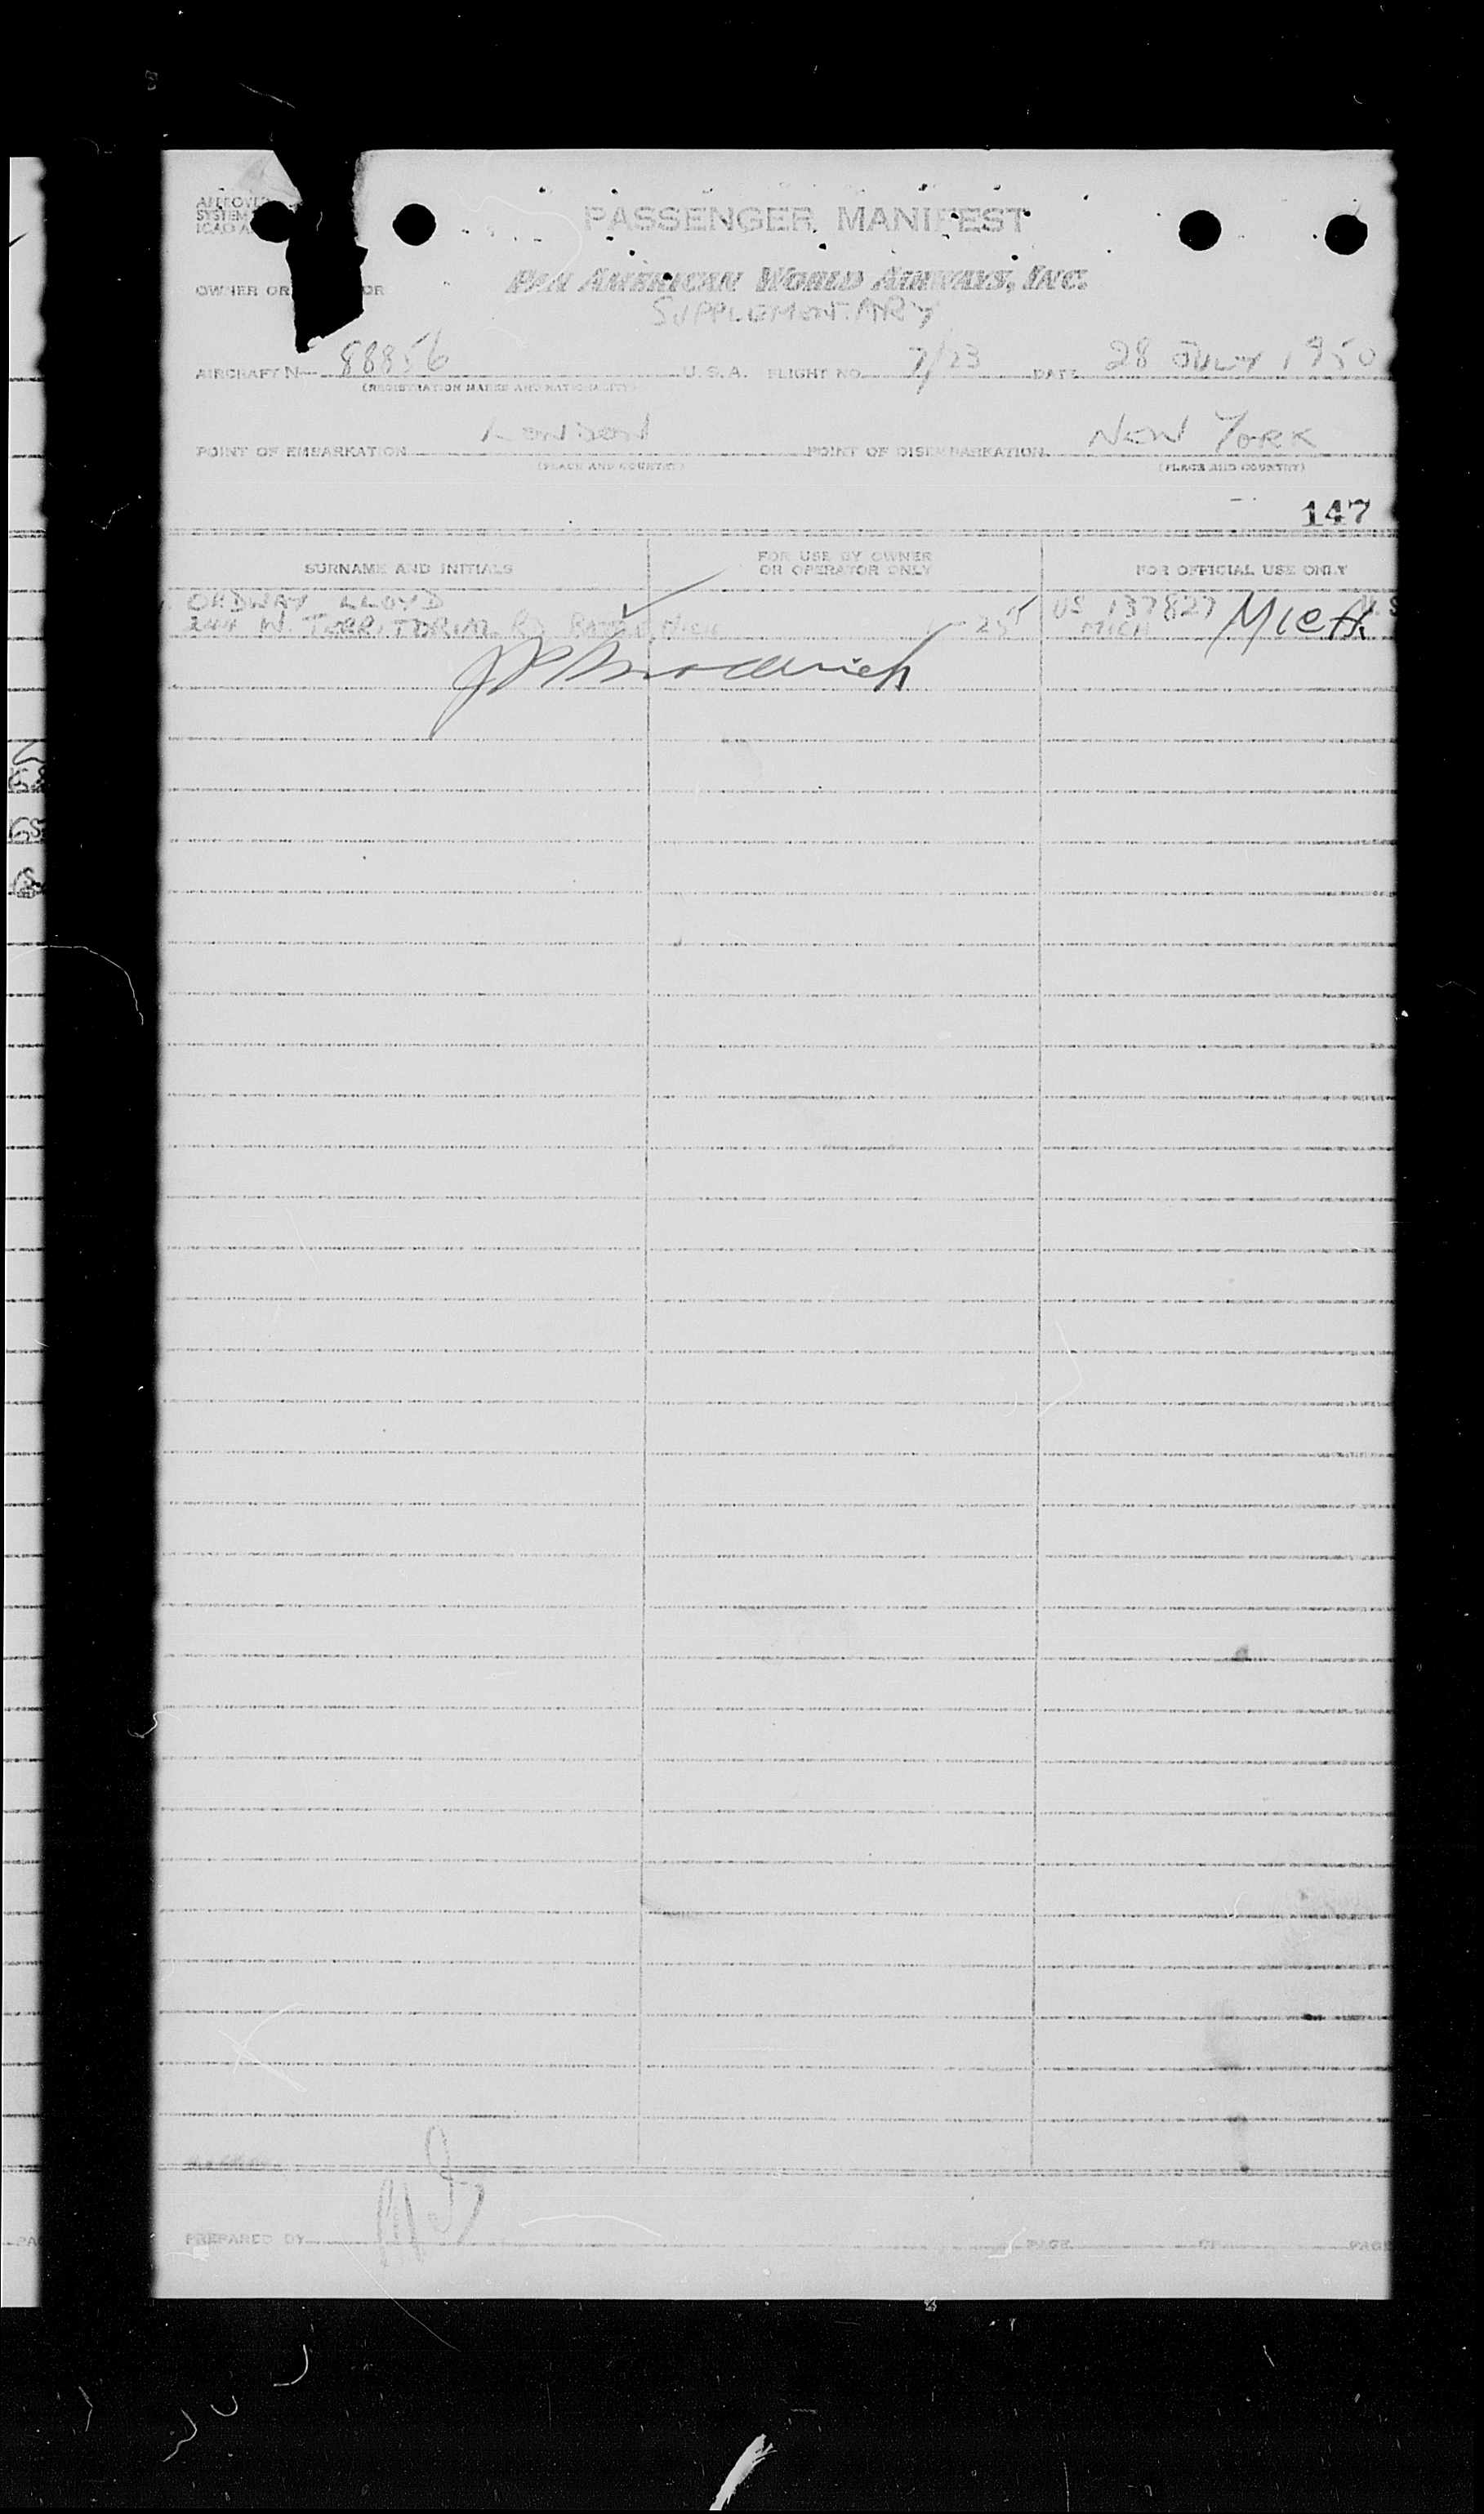 APPROVED
SYSTEM
ICAO A
PASSENGER MANIFEST
OWNER OR OR
PAN AMERICAN WORLD AIRWAYS, INC.
SUPPLEMENTARY
AIRCRAFT N— 88856 U.S.A. FLIGHT NO. 7/23 DATE 28 JULY 1950
(REGISTRATION MARKS AND NATIONALITY)
POINT OF EMBARKATION LONDON POINT OF DISEMBARKATION NEW YORK
(PLACE AND COUNTRY) (PLACE AND COUNTRY)
147
SURNAME AND INITIALS FOR USE BY OWNER OR OPERATOR ONLY FOR OFFICIAL USE ONLY
ORDWAY LLOYD US 137827
244 W. TERRITORIAL RD MICH 25 MICH MICH.
PREPARED BY PAGE OF PAGE